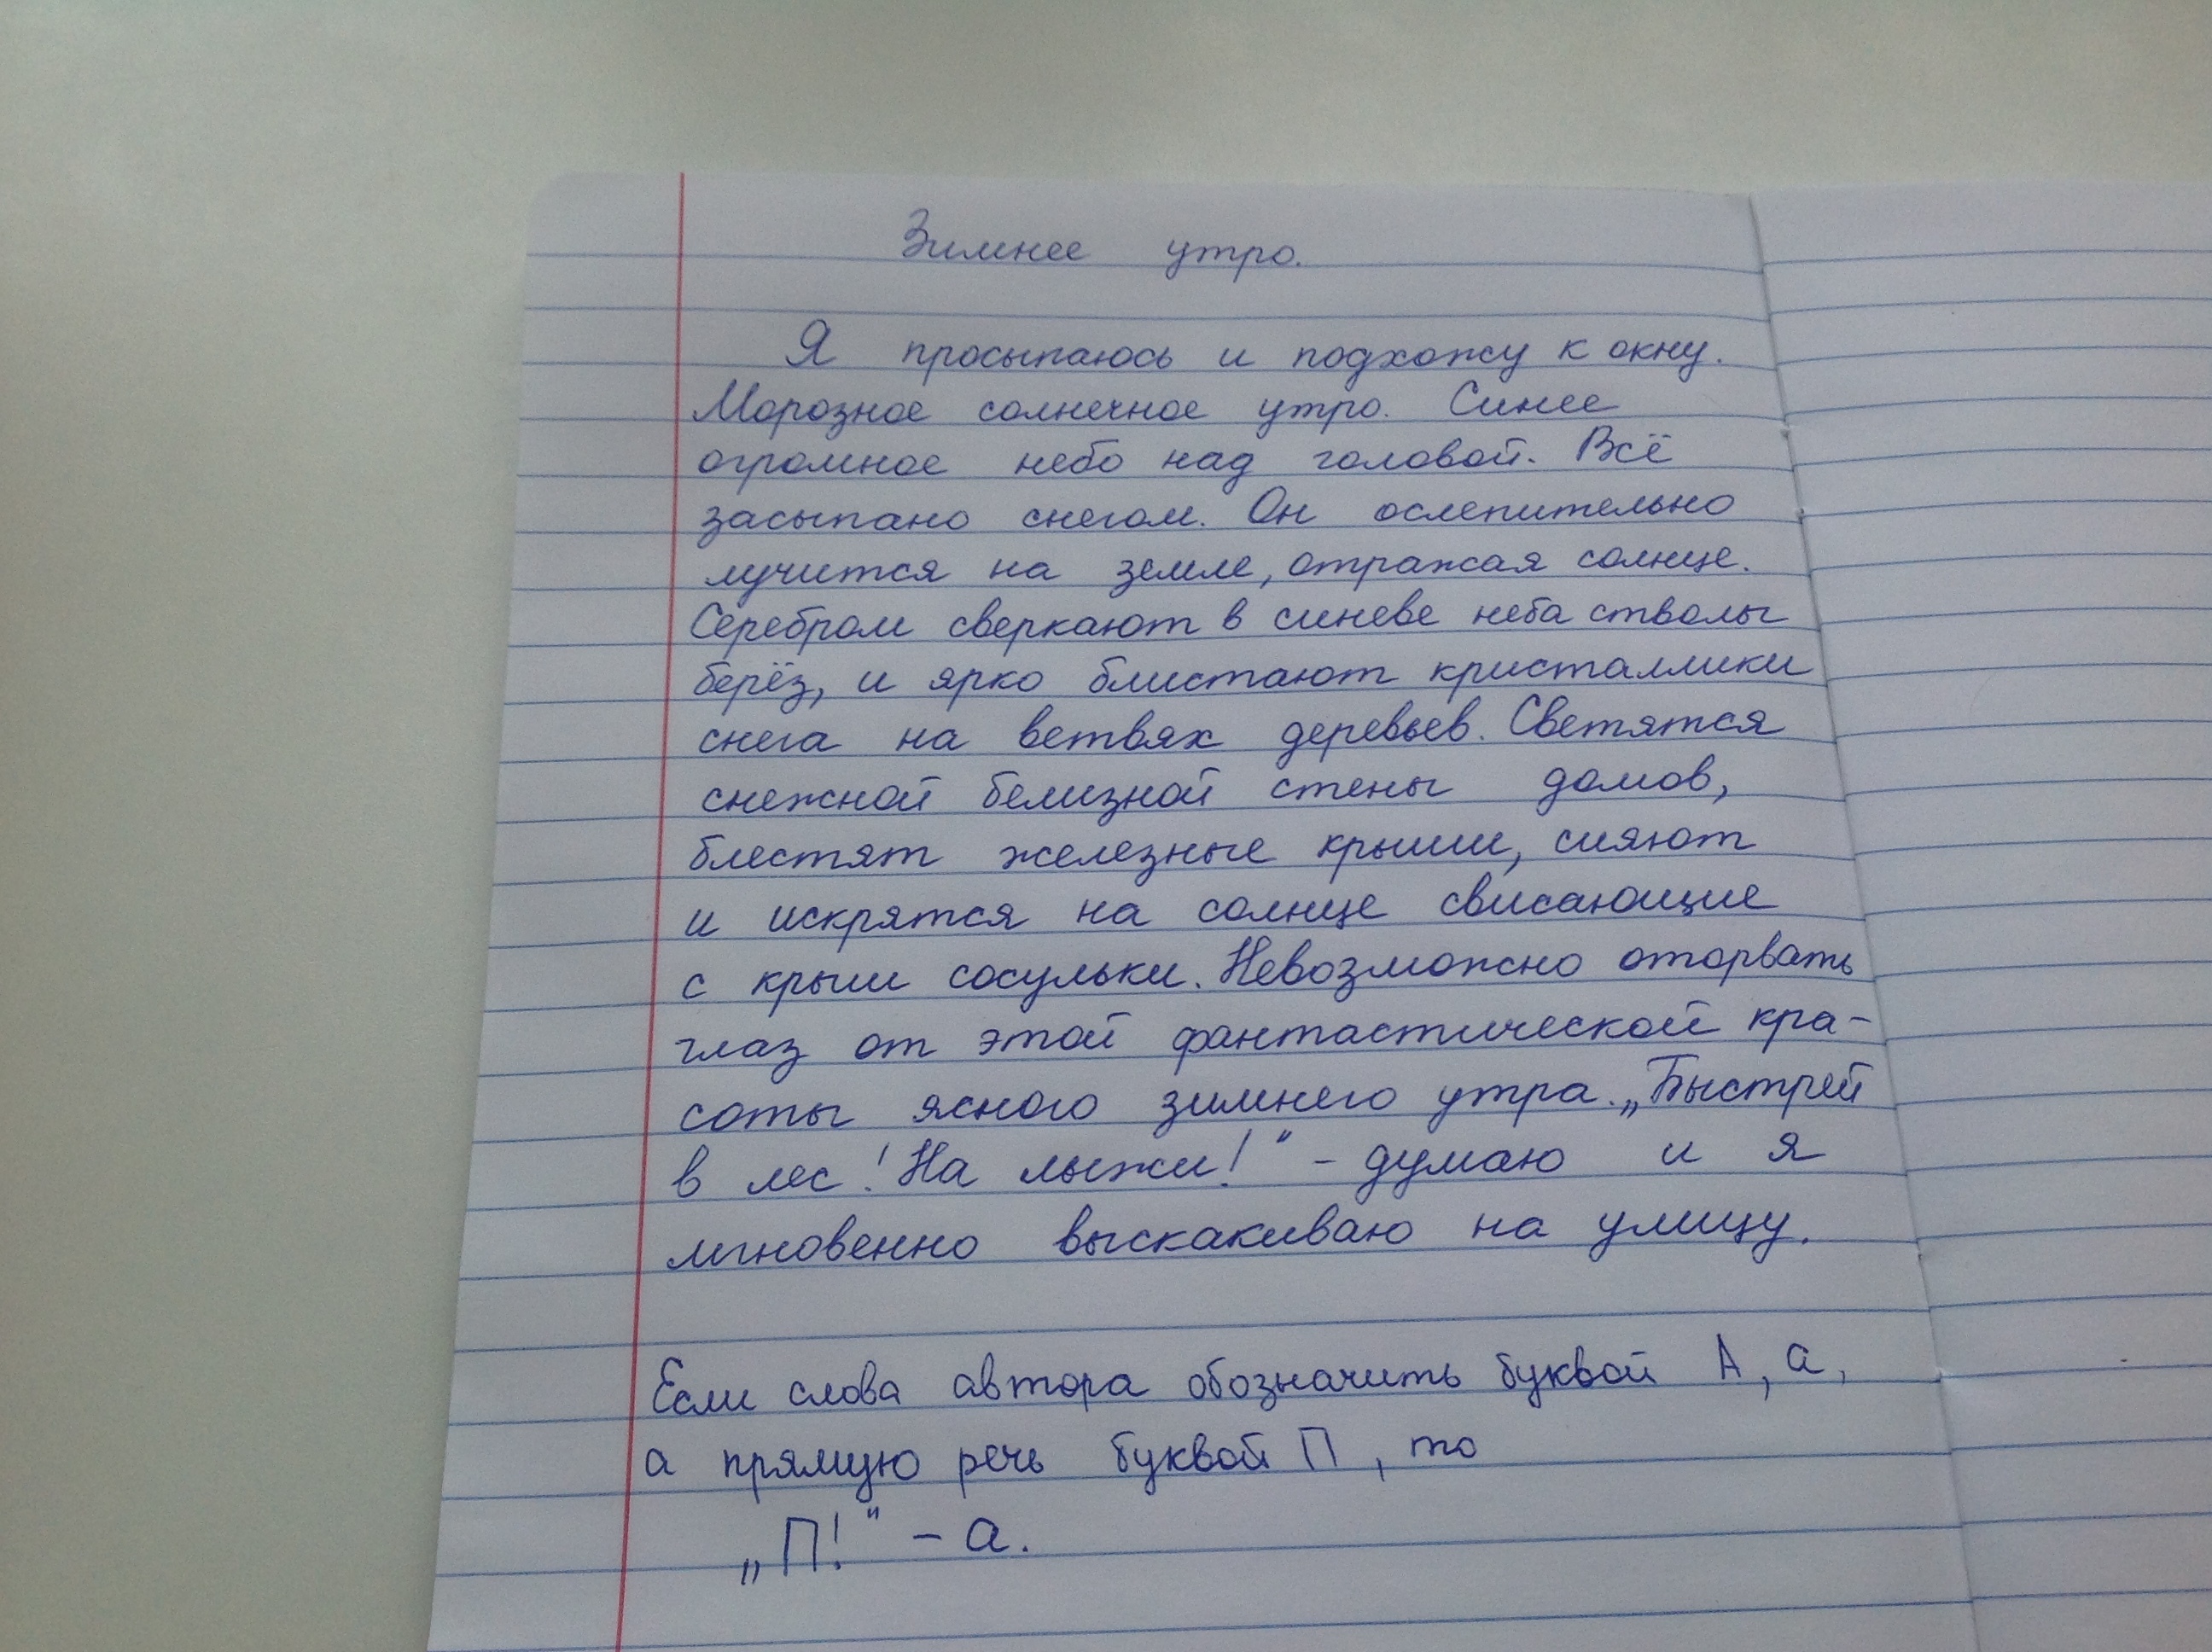 Зимнее утро.
Я просыпаюсь и подхожу к окну.
Морозное солнечное утро. Синее
огромное небо над головой. Всё
засыпано снегом. Он ослепительно
лучится на земле, отражая солнце.
Серебром сверкают в синеве неба стволы
берёз, и ярко блистают кристаллики
снега на ветвях деревьев. Светятся
снежной белизной стены домов,
блестят железные крыши, сияют
и искрятся на солнце свисающие
с крыш сосульки. Невозможно оторвать
глаз от этой фантастической кра-
соты ясного зимнего утра. „Быстрей
в лес! На лыжи!" - думаю и я
мгновенно выскакиваю на улицу.
Если слова автора обозначить буквой А, а,
а прямую речь буквой П, то
„П!" - а.